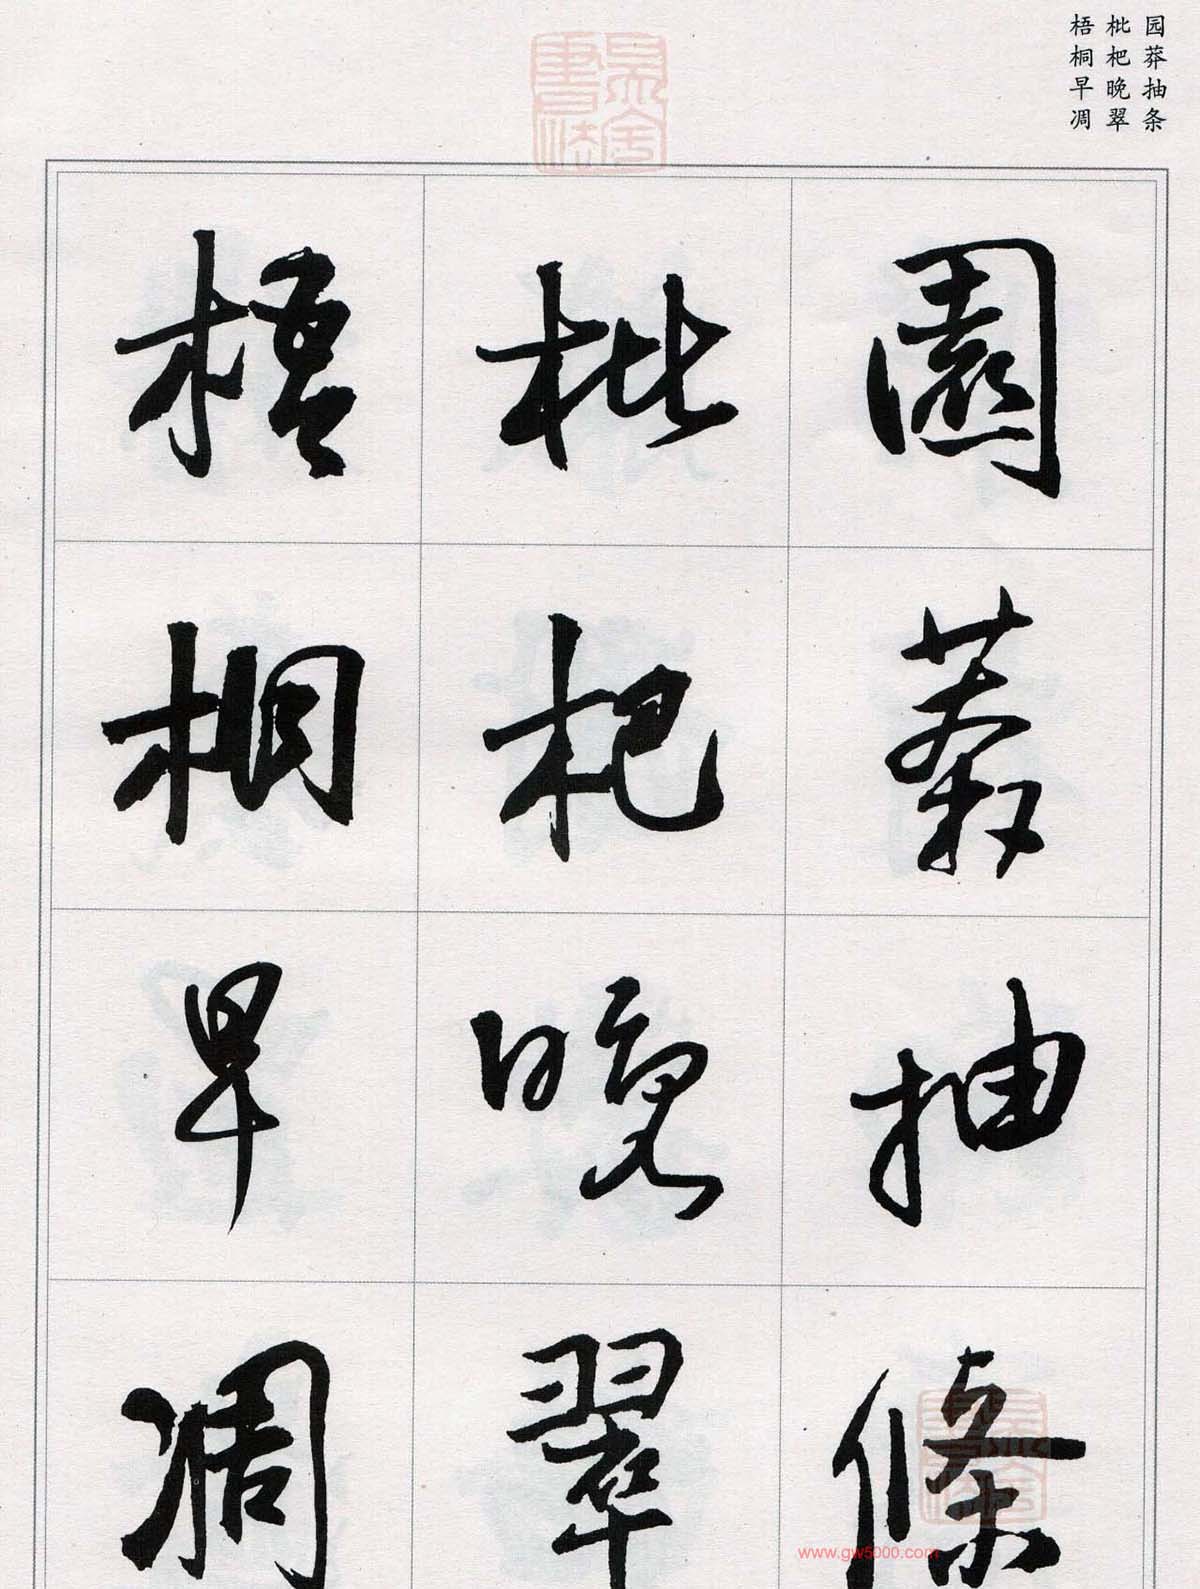 园莽抽条
枇杷晚翠
梧桐早凋
園莽抽條
枇杷晚翠
梧桐早凋
www.gw5000.com